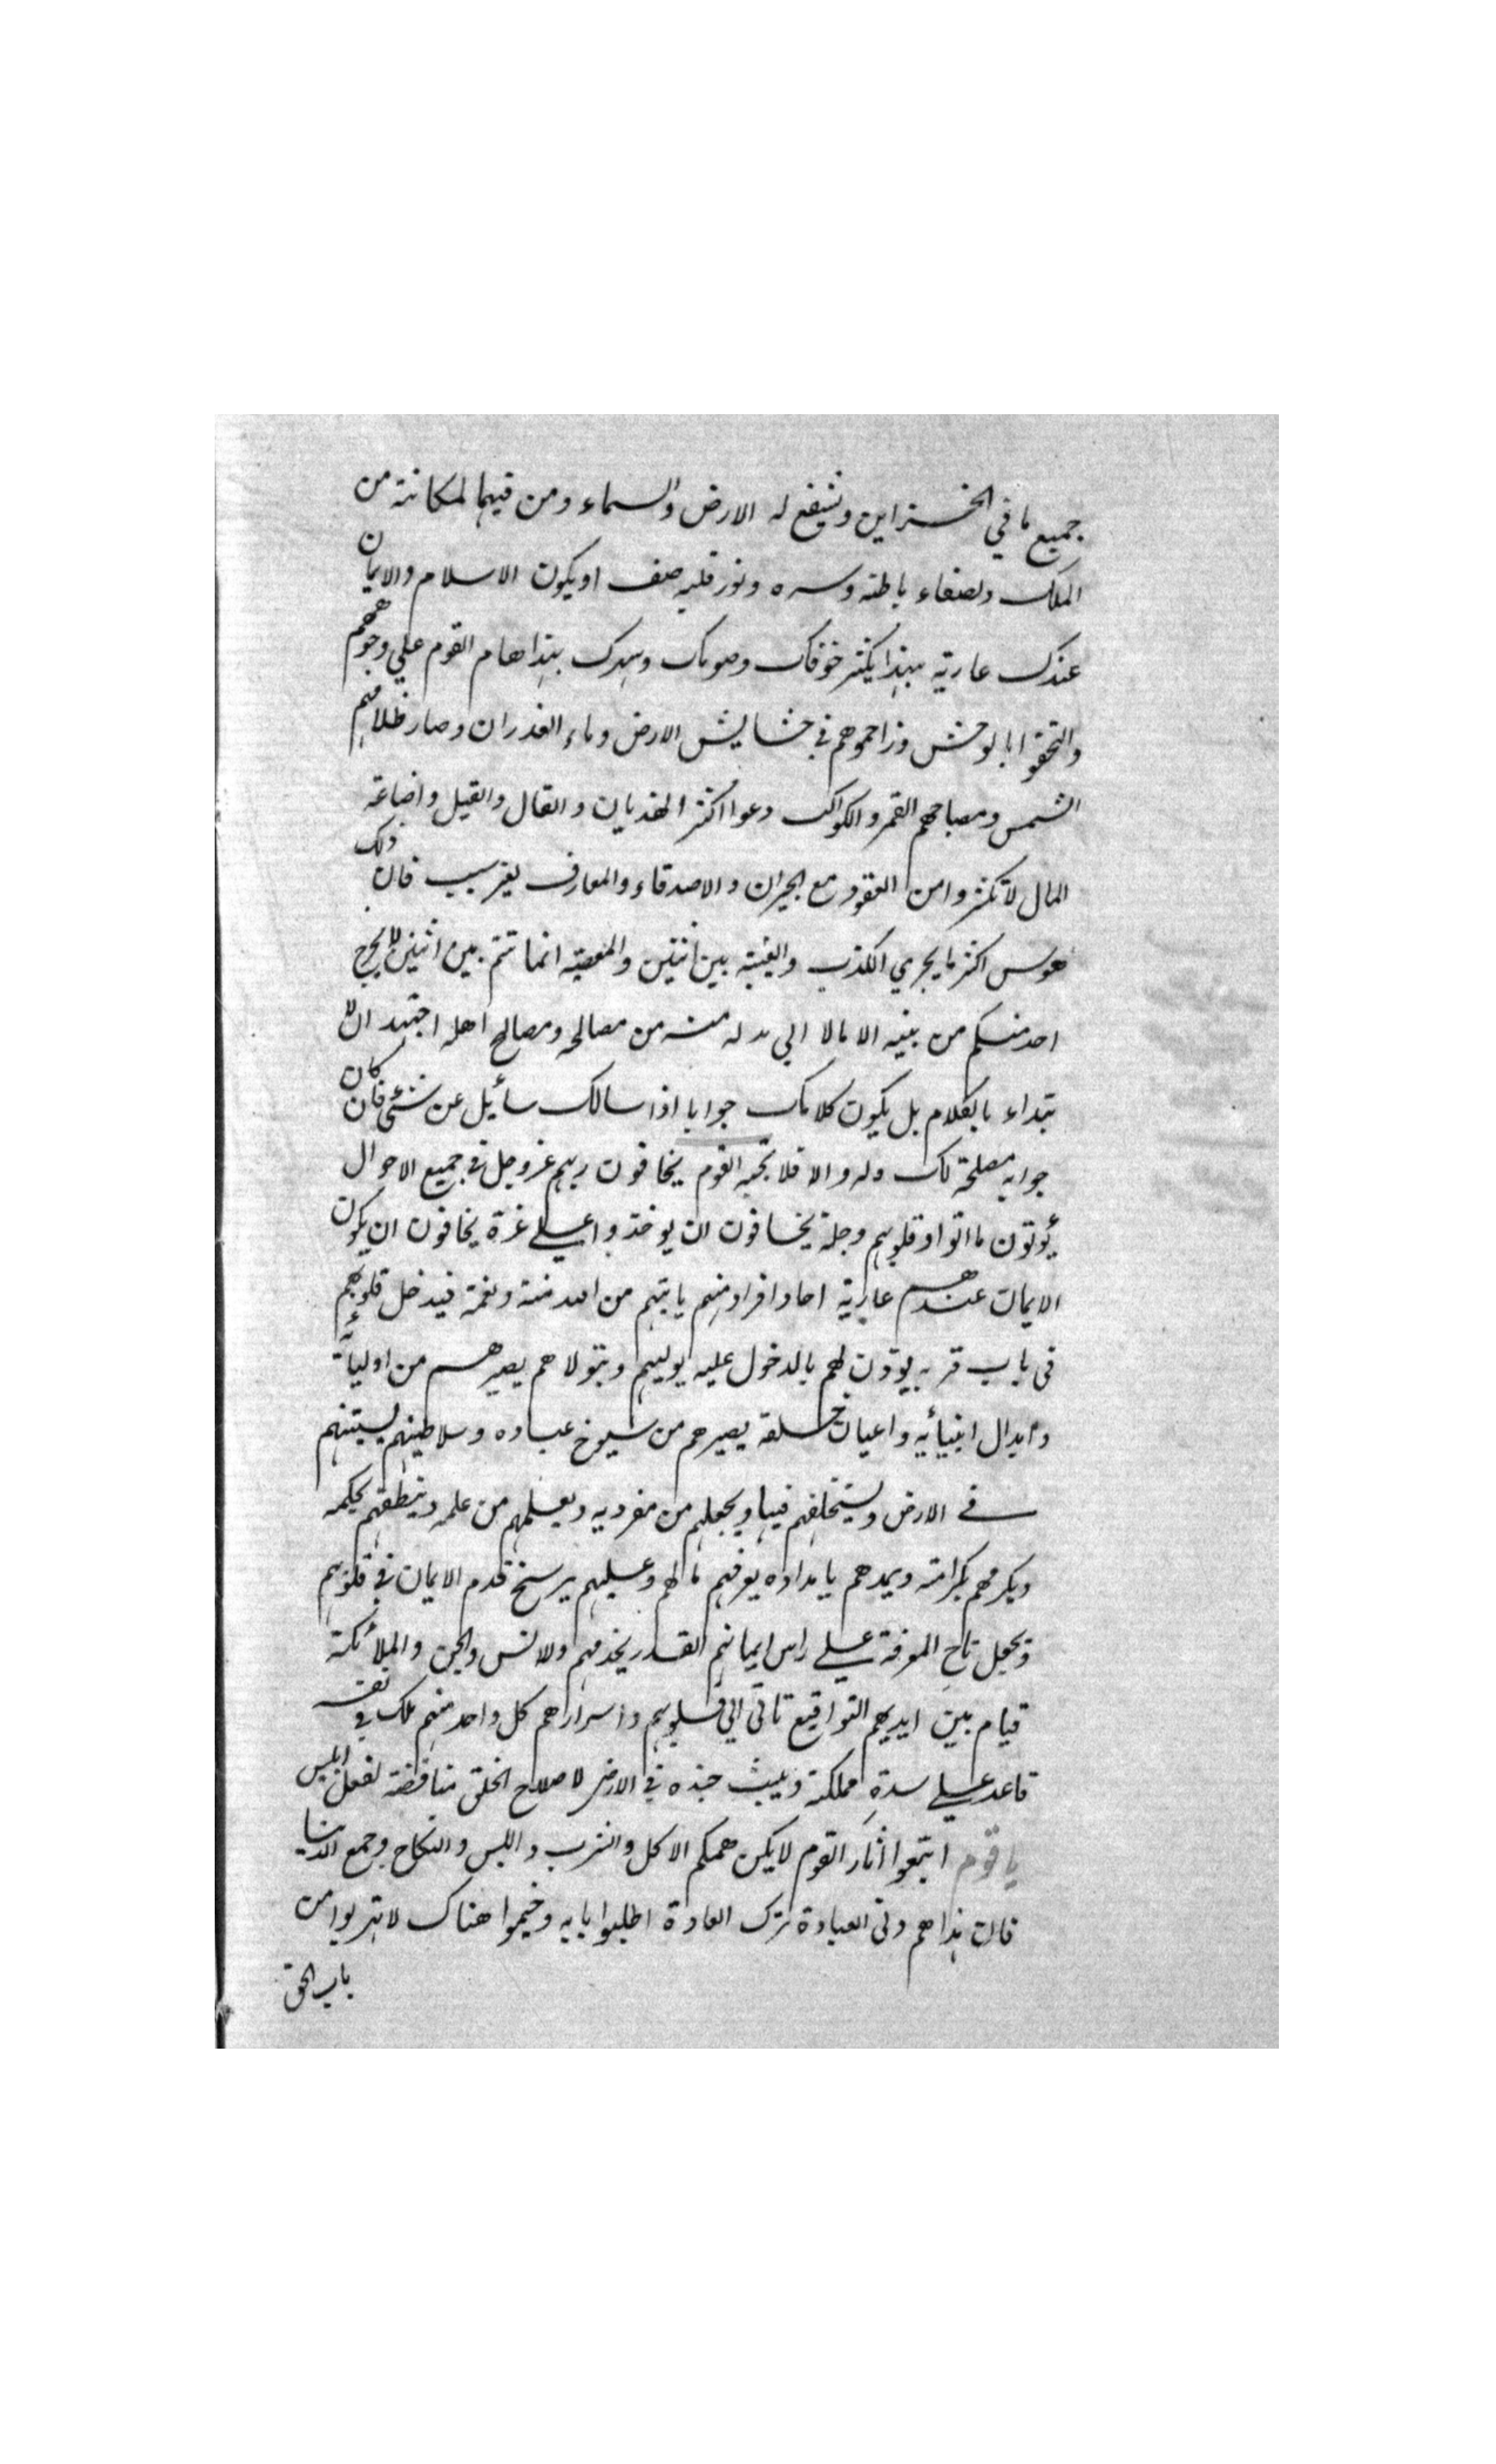 جميع ما في الخزاين ويشفع له الارض والسماء ومن فيهما لمكانته من
الملك ولصفاء باطنه وسره ونور قلبه صف او يكون الاسلام والايمان
عندك عارية بهذا يكثر خوفك وصومك وسهرك بهذا هام القوم علي وجوههم
والتحقوا بالوحش وزاحموهم في حشايش الارض وماء الغدران وصار ظلالهم
الشمس ومصباحهم القمر والكواكب دعوا اكثر الهذيان والقال والقيل واضاعة
المال لا تكثروا من العقود مع الجيران والاصدقاء والمعارف بغير سبب فان ذلك
هوس اكثر ما يجري الكذب والغيبة بين اثنين والمعصية انما تتم بين اثنين لا يخرج
احد منكم من بيته الا مالا الي بد له منه من مصالحه ومصالح اهله اجتهد ان لا
تبتداء بالكلام بل يكون كلامك جوابا اذا سالك سائل عن شئ فان كان
جوابه مصلحة لك وله والا فلا تجبه القوم يخافون ربهم عز وجل في جميع الاحوال
يؤتون ما اتوا وقلوبهم وجلة يخافون ان يوخذوا علي غرة يخافون ان يكون
الايمان عندهم عارية احاد افراد منهم ياتيهم من الله منة ونعمة فيدخل قلوبهم
في باب قربه يوذن لهم بالدخول عليه يوليهم ويتولاهم يصيرهم من اوليائه
وابدال انبيائه واعيان خلقه يصيرهم من شيوخ عباده وسلاطينهم يستنبهم
في الارض ويستخلفهم فيها ويجعلهم من مفرديه ويعلمهم من علمه وينطقهم بحكمه
ويكرمهم بكرامته ويمدهم بامداده يعرفهم مالهم وعليهم يرسخ قدم الايمان في قلوبهم
ويجعل تاج المعرفة علي راس ايمانهم القدر يخدمهم ولانس والجن والملائكة
قيام بين ايديهم التواقيع تاتي الي قلوبهم واسرارهم كل واحد منهم ملك في نفسه
قاعد علي سدة مملكته ويبث جنده في الارض لاصلاح الخلق مناقضة لفعل ابليس
يا قوم اتبعوا اثار القوم لا يكن همكم الاكل والشرب واللبس والنكاح وجمع الدنيا
فان هذا هم دني العبادة ترك العادة اطلبوا بابه وخيموا هناك لا تهربوا من
باب الحق